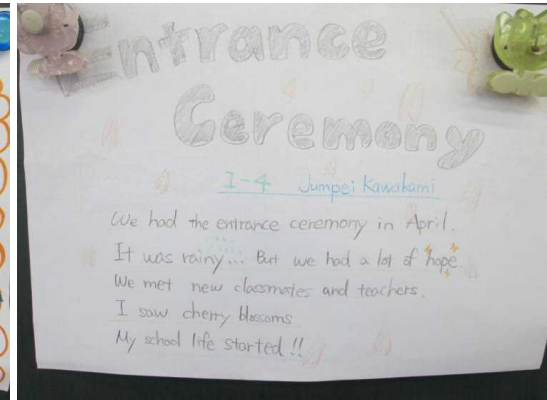 Entrance
Ceremony
1-4 Jumpei Kawakami
We had the entrance ceremony in April.
It was rainy... But we had a lot of hope.
We met new classmates and teachers.
I saw cherry blossoms
My school life started!!